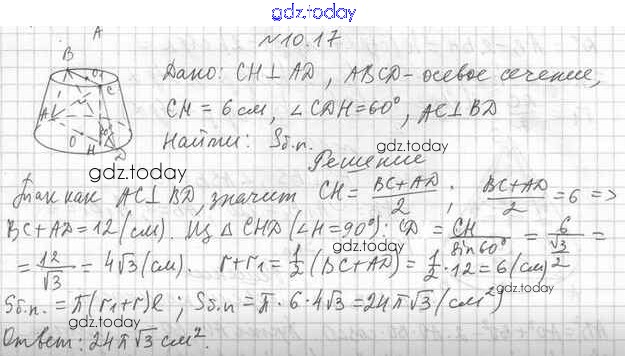 gdz.today
№10.17
Дано: CH⊥AD, ABCD-осевое сечение,
CH = 6 см, ∠CDH=60°, AC⊥BD
Найти: Sб.п.
gdz.today
Решение
Так как AC⊥BD, значит CH = (BC+AD)/2 ; (BC+AD)/2 = 6 =>
gdz.today
BC+AD=12(см). Из △CHD (∠H=90°): CD = CH/sin60° = 6/(√3/2) =
= 12/√3 = 4√3(см). r+r₁=1/2(BC+AD)=1/2·12=6(см)
gdz.today
Sб.п. = π(r₁+r)l ; Sб.п = π·6·4√3=24π√3(см²)
gdz.today
Ответ: 24π√3 см².
A
B
O₁
C
A
O
H
60°
D